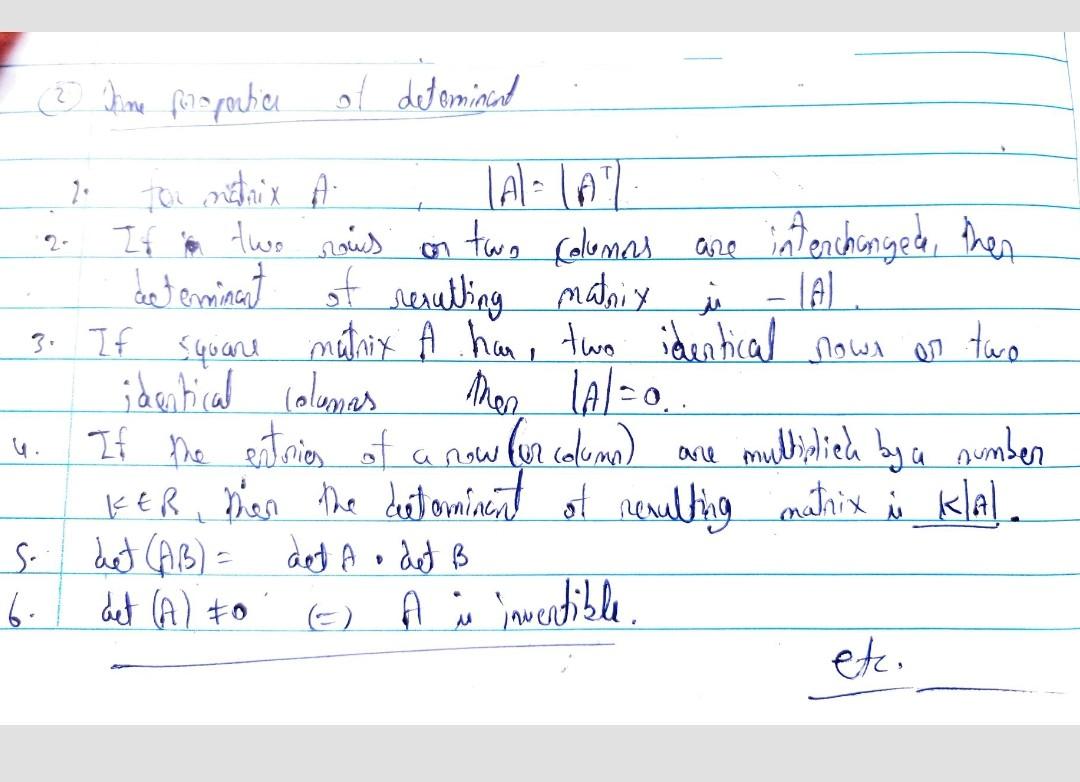 (2) Some properties of determinant
1. For matrix A. , |A| = |Aᵀ|.
2. If two rows or two columns are interchanged, then
determinant of resulting matrix is - |A|.
3. If square matrix A has, two identical rows or two
identical columns then |A| = 0..
4. If the entries of a row (or column) are multiplied by a number
K ∈ R, then the determinant of resulting matrix is K|A|.
5. det (AB) = det A • det B
6. det (A) ≠ 0 (=) A is invertible.
etc.